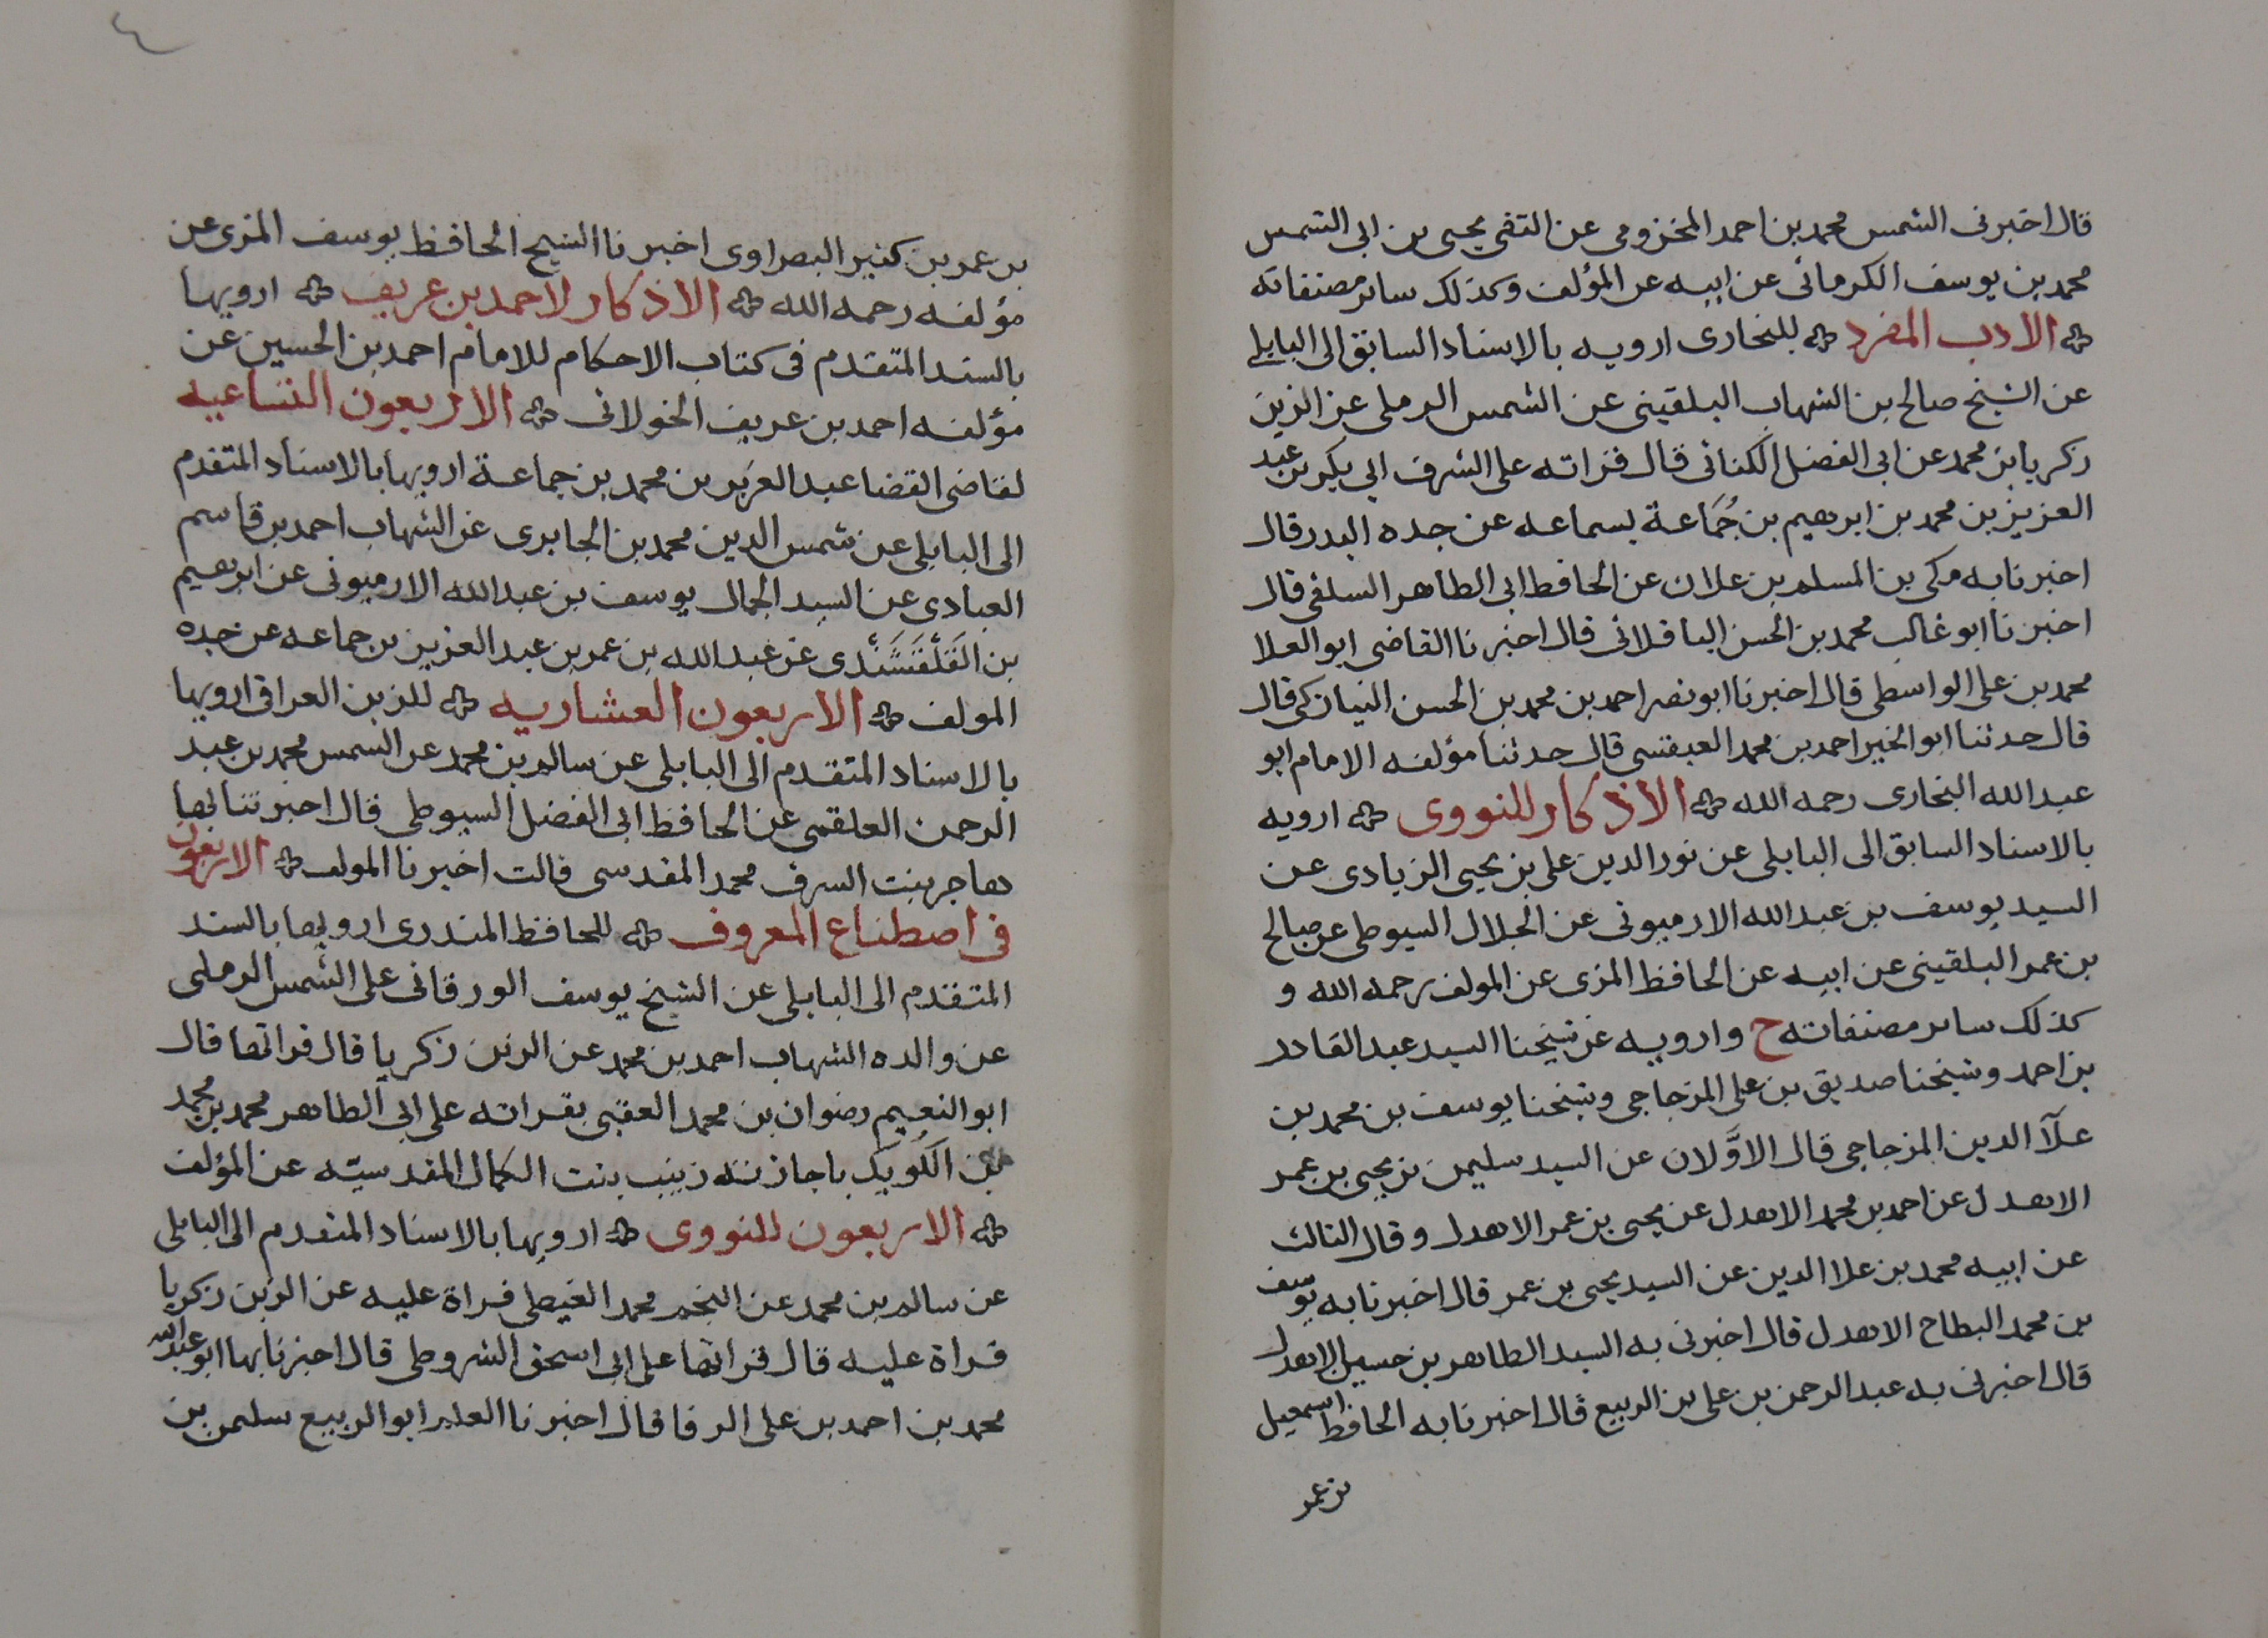 قال اخبرنى الشمس محمد بن احمد المخزومى عن التقى يحيى بن ابى الشمس
محمد بن يوسف الكرمانى عن ابيه عن المؤلف وكذلك ساير مصنفاته
الادب المفرد للبخارى ارويه بالاسناد السابق الى البابلى
عن الشيخ صالح بن الشهاب البلقينى عن الشمس الرملى عن الزين
زكريا بن محمد عن ابى الفضل الكنانى قال قراته على الشرف ابى بكر بن عبد
العزيز بن محمد بن ابرهيم بن جُمَاعة بسماعه عن جده البدر قال
اخبرنا به مكى بن المسلم بن علان عن الحافظ ابى الطاهر السلفى قال
اخبرنا ابو غالب محمد بن الحسن الباقلانى قال اخبرنا القاضى ابو العلا
محمد بن على الواسطى قال اخبرنا ابو نصر احمد بن محمد بن الحسن النيازكى قال
قال حدثنا ابو الخير احمد بن محمد العبقسى قال حدثنا مؤلفه الامام ابو
عبد الله البخارى رحمه الله الاذكار للنووى ارويه
بالاسناد السابق الى البابلى عن نور الدين على بن يحيى الزيادى عن
السيد يوسف بن عبد الله الارميونى عن الجلال السيوطى عن صالح
بن عمر البلقينى عن ابيه عن الحافظ المزى عن المولف رحمه الله و
كذلك ساير مصنفاته ح وارويه عن شيخنا السيد عبد القادر
بن احمد وشيخنا صديق بن على المزجاجى وشيخنا يوسف بن محمد بن
علآ الدين المزجاجى قال الاوَّلان عن السيد سليمن بن يحيى بن عمر
الاهدل عن احمد بن محمد الاهدل عن يحيى بن عمر الاهدل وقال الثالث
عن ابيه محمد بن علا الدين عن السيد يحيى بن عمر قال اخبرنا به يوسف
بن محمد البطاح الاهدل قال اخبرنى به السيد الطاهر بن حسين الاهدل
قال اخبرنى به عبد الرحمن بن على بن الربيع قال اخبرنا به الحافظ اسمعيل
بن عمر
٤
بن عمر بن كثير البصراوى اخبرنا الشيخ الحافظ يوسف المزى عن
مؤلفه رحمه الله الاذكار لاحمد بن عريف ارويها
بالسند المتقدم فى كتاب الاحكام للامام احمد بن الحسين عن
مؤلفه احمد بن عريف الخولانى الاربعون التساعيه
لقاضى القضا عبد العزيز بن محمد بن جماعة ارويها بالاسناد المتقدم
الى البابلى عن شمس الدين محمد بن الجابرى عن الشهاب احمد بن قاسم
العبادى عن السيد الجمال يوسف بن عبد الله الارميونى عن ابرهيم
بن القَلْقَشَنْدى عن عبد الله بن عمر بن عبد العزيز بن جماعه عن جده
المولف الاربعون العشاريه للزين العراقى ارويها
بالاسناد المتقدم الى البابلى عن سالم بن محمد عن الشمس محمد بن عبد
الرحمن العلقمى عن الحافظ ابى الفضل السيوطى قال اخبرتنا بها
هاجر بنت الشرف محمد المقدسى قالت اخبرنا المولف الاربعون
فى اصطناع المعروف للحافظ المنذرى ارويها بالسند
المتقدم الى البابلى عن الشيخ يوسف الورقانى على الشمس الرملى
عن والده الشهاب احمد بن محمد عن الزين زكريا قال قراتها قال
ابو النعيم رضوان بن محمد العقبى بقراته على ابى الطاهر محمد بن محمد
بن الكُوَيك باجازته زينب بنت الكمال المقدسيّه عن المؤلف
الاربعون للنووى ارويها بالاسناد المتقدم الى البابلى
عن سالم بن محمد عن النجم محمد الغيطى قراة عليه عن الزين زكريا
قراة عليه قال قراتها على ابى اسحق الشروطى قال اخبرنا بها ابو عبد الله
محمد بن احمد بن على الرفا قال اخبرنا العلم ابو الربيع سليمن بن